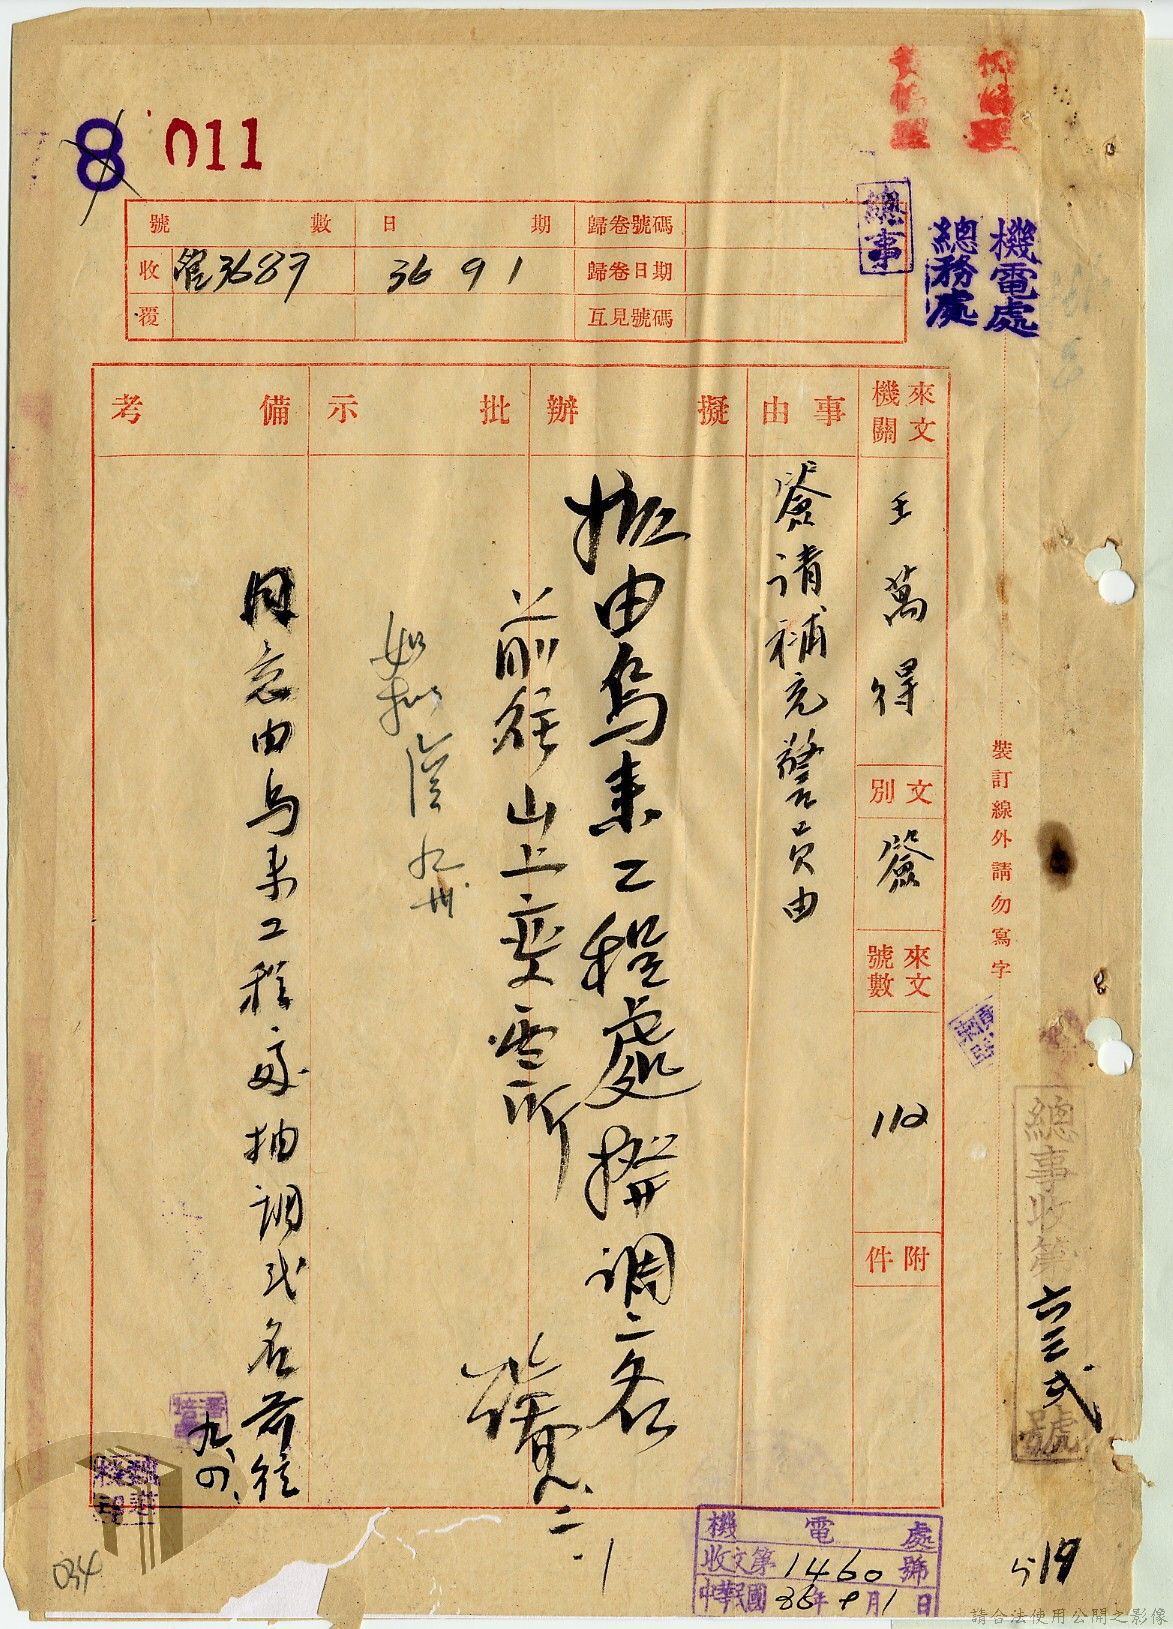 8
011
總事
機電處
總務處
號數
日期
歸卷號碼
收
管3687
36 9 1
歸卷日期
覆
互見號碼
來文機關
王萬得
文別
簽
來文號數
112
附件
事由
簽請補充警員由
擬辦
擬由烏來工程處撥調二名
前往山上變電所
批示
如擬
備考
同意由烏來工程處抽調弍名前往
九、四、
裝訂線外請勿寫字
總事收第六三弍號
機電處
收文第1460號
中華民國36年9月1日
034
519
請合法使用公開之影像